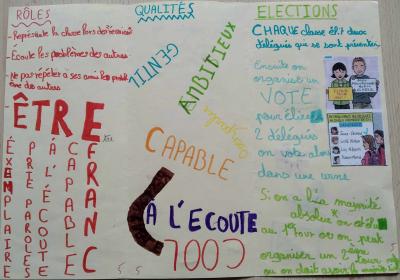 RÔLES
- Représente la classe lors des conseils
- Écoute les problèmes des autres
- Ne pas répéter à ses amis les problèmes des autres
- ÊTRE
EXEMPLAIRE
PRIT PAROLES
À L'ÉCOUTE
CAPABLE
FRANC
QUALITÉS
GENTIL
AMBITIEUX
CAPABLE
À L'ECOUTE
COOL
ELECTIONS
CHAQUE classe élit deux
délégués qui se sont présentés
Ensuite on
organise un
VOTE
pour élire
2 délégués
on vote alors
dans une urne
Si on a la majorité
absolue on est élu
au 1er tour ou on peut
organiser un 2ème tour